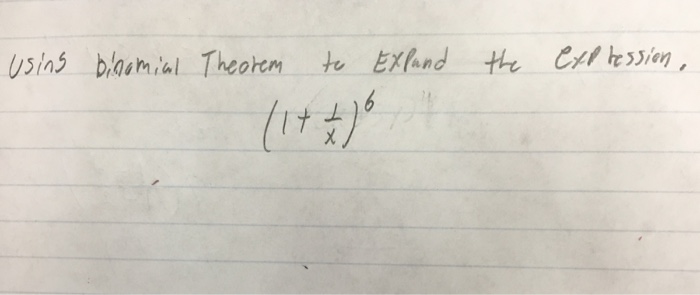 Using binomial Theorem to Expand the expression.
(1 + 1/x)^6